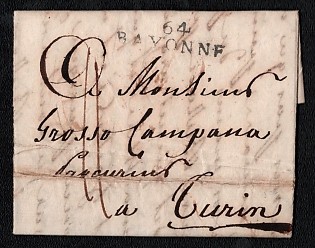 64
BAYONNE
A Monsieur
Grosso Campana
Procureur
a Turin